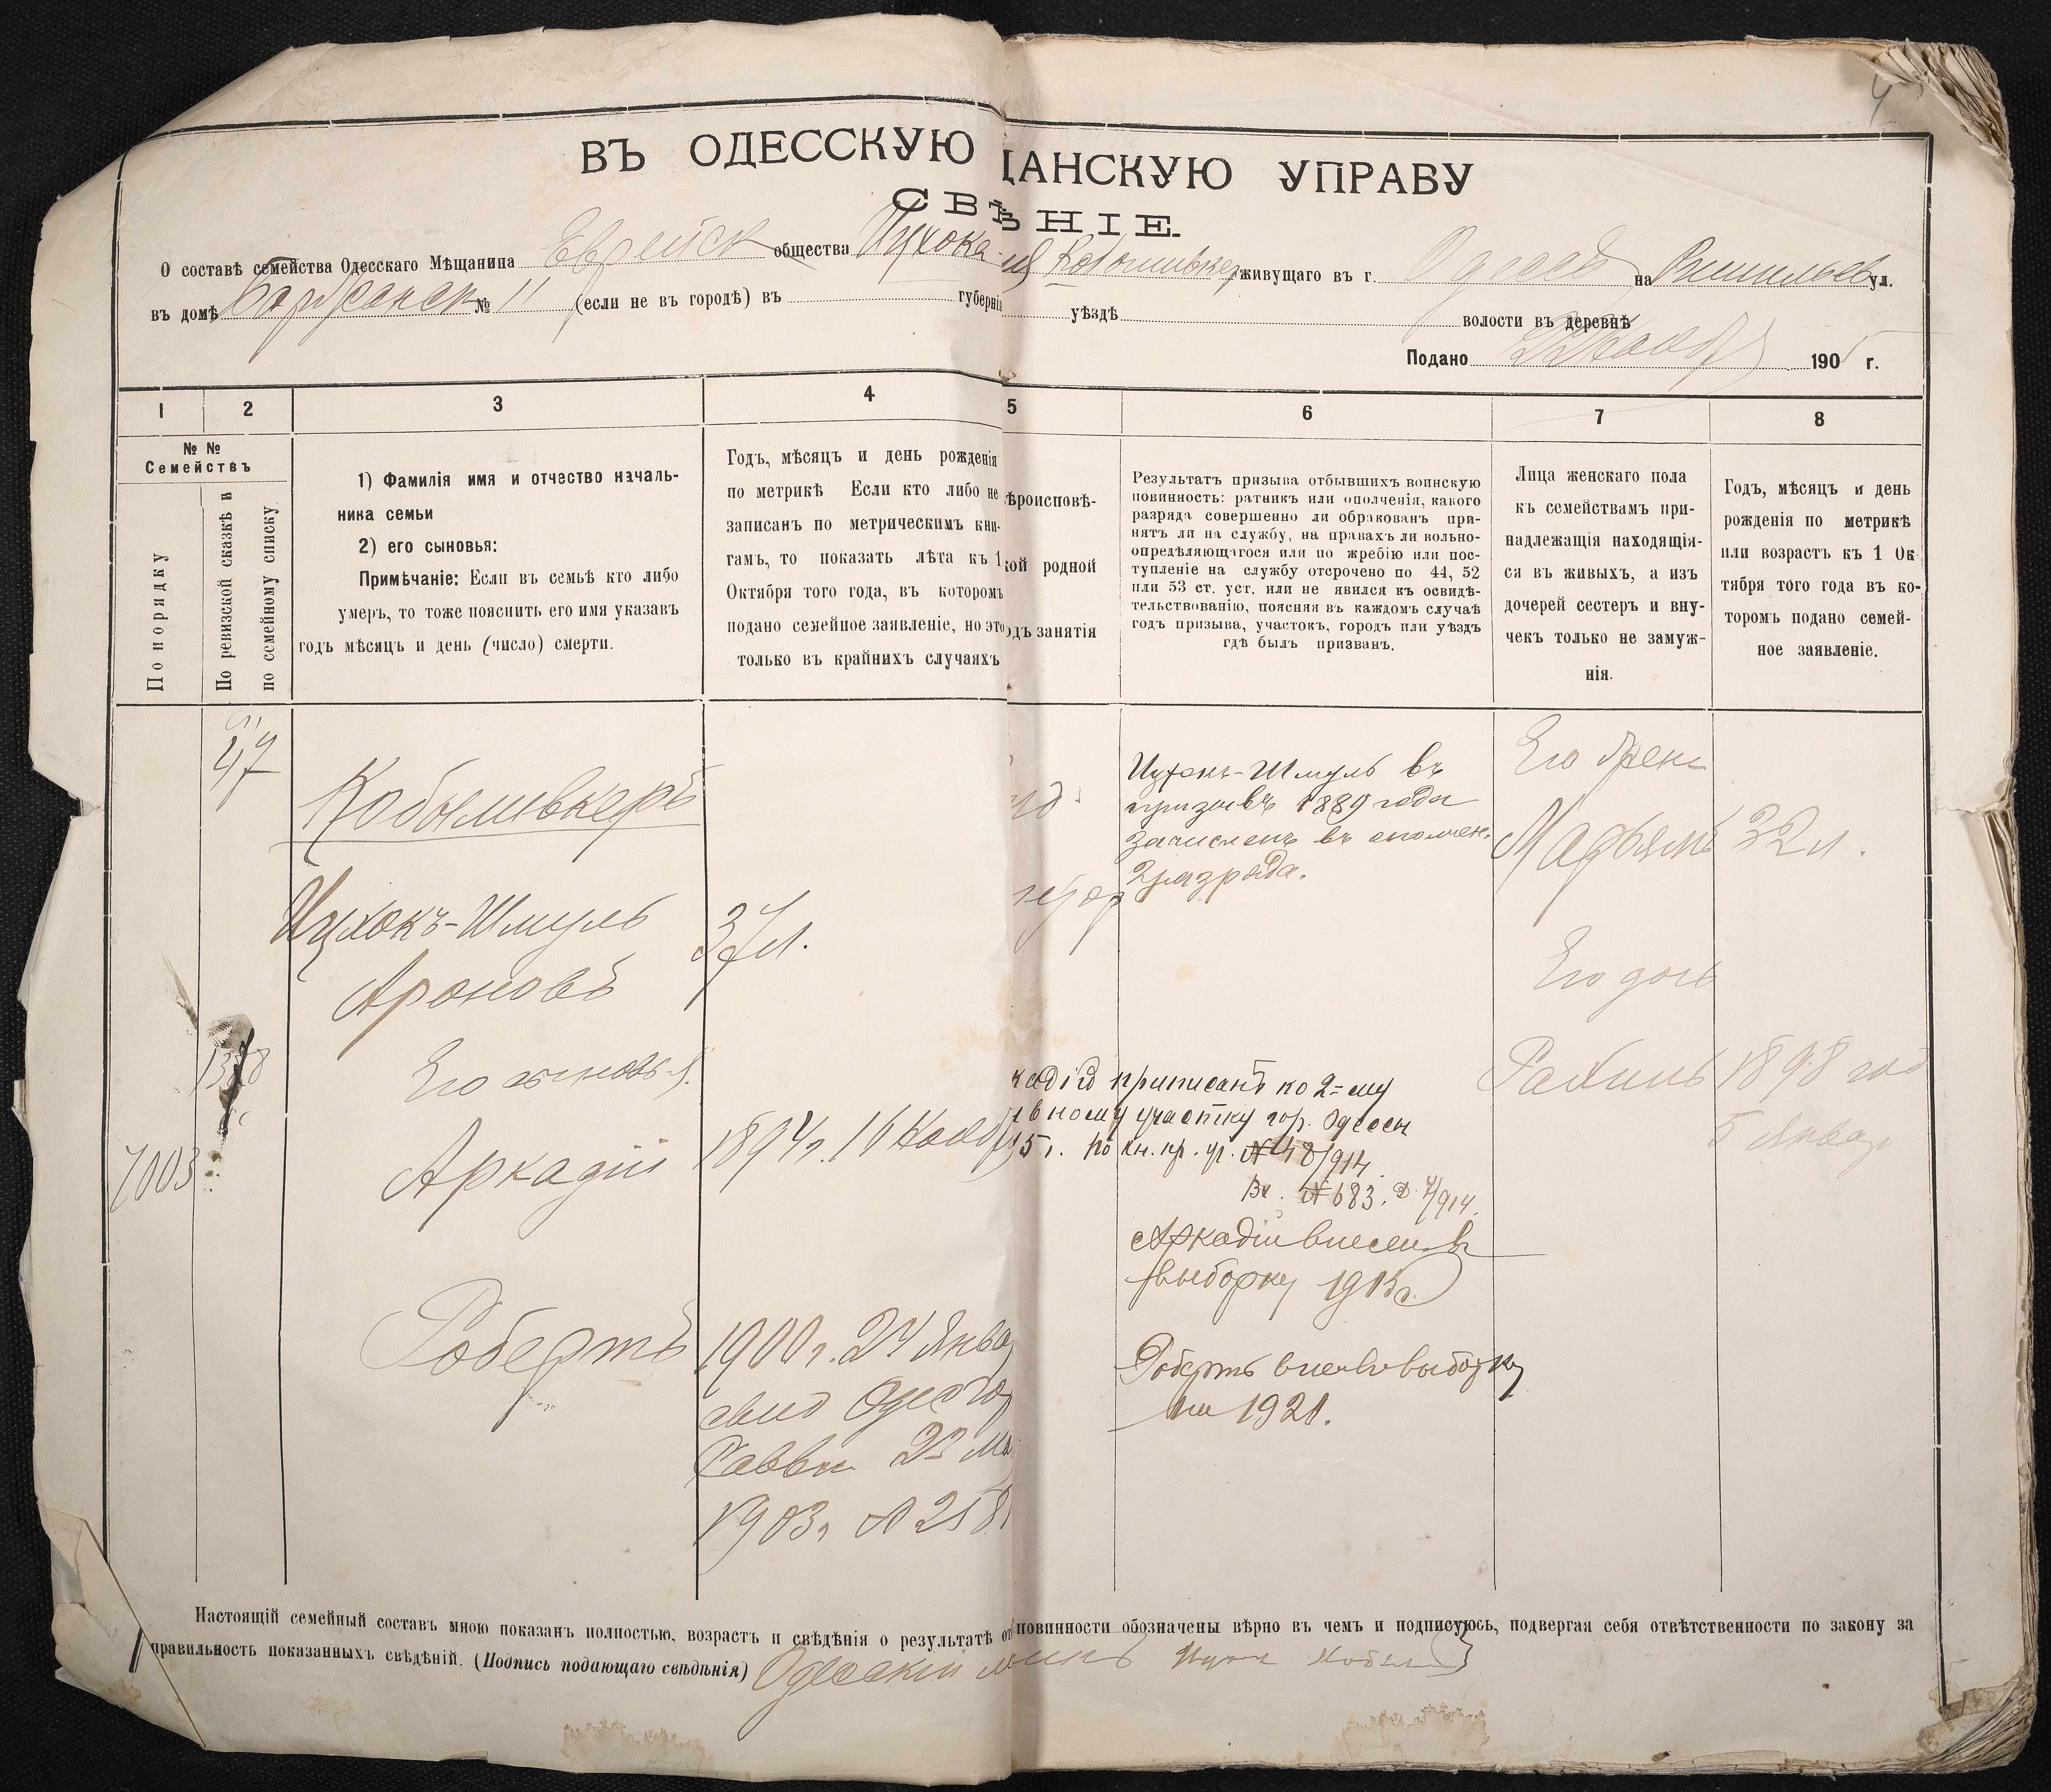 4
ВЪ ОДЕССКУЮ ЩАНСКУЮ УПРАВУ
СВѢ НІЕ.
О составѣ семейства Одесскаго Мѣщанина Еврейск общества Ицхока живущаго въ г. Одессѣ на ул.
въ домѣ № 11 (если не въ городѣ) въ губерніи уѣздѣ волости въ деревнѣ
Подано 190 г.
1 2 3 4 5 6 7 8
№ №
Семействъ
По порядку
По ревизской сказкѣ и
по семейному списку
1) Фамилія имя и отчество началь-
ника семьи
2) его сыновья:
Примѣчаніе: Если въ семьѣ кто либо
умеръ, то тоже пояснить его имя указавъ
годъ мѣсяцъ и день (число) смерти.
Годъ, мѣсяцъ и день рожденія
по метрикѣ Если кто либо не
записанъ по метрическимъ кни-
гамъ, то показать лѣта къ 1
Октября того года, въ которомъ
подано семейное заявленіе, но это
только въ крайнихъ случаяхъ
ѣроисповѣ-
кой родной
одъ занятія
Результатъ призыва отбывшихъ воинскую
повинность: ратникъ или ополченія, какого
разряда совершенно ли обракованъ при-
нятъ ли на службу, на правахъ ли вольно-
опредѣляющагося или по жребію или пос-
тупленіе на службу отсрочено по 44, 52
или 53 ст. уст. или не явился къ освидѣ-
тельствованію, поясняя въ каждомъ случаѣ
годъ призыва, участокъ, городъ или уѣздъ
гдѣ былъ призванъ.
Лица женскаго пола
къ семействамъ при-
надлежащія находящія-
ся въ живыхъ, а изъ
дочерей сестеръ и вну-
чекъ только не замуж-
нія.
Годъ, мѣсяцъ и день
рожденія по метрикѣ
или возрастъ къ 1 Ок
тября того года въ ко-
торомъ подано семей-
ное заявленіе.
47
Кобыливкеръ
Ицхокъ-Шмуль
Ароновъ
37 л.
Его сыновья:
7003
Аркадій
1894 г. 16 Нояб
Робертъ
1900 г. 24 Янва
свид Одес Гор
Раввин
1903 г. № 258
Ицхокъ-Шмуль въ
призывѣ 1889 года
зачисленъ въ ополчен.
2 разряда.
кадій приписанъ ко 2-му
вному участку гор. Одессы
5 г. по кн. пр. уч. № 48/914
Вх. № 683.
Аркадій внесен въ
выборку 1915 г.
Робертъ внесен в выборку
на 1921.
Его жена
Марьямъ
32 л.
Его дочь
Рахиль
1898 год
5 Январ
Настоящій семейный составъ мною показанъ полностью, возрастъ и свѣдѣнія о результатѣ от повинности обозначены вѣрно въ чемъ и подписуюсь, подвергая себя отвѣтственности по закону за
правильность показанныхъ свѣдѣній. (Подпись подающаго свѣдѣнія) Одесскій